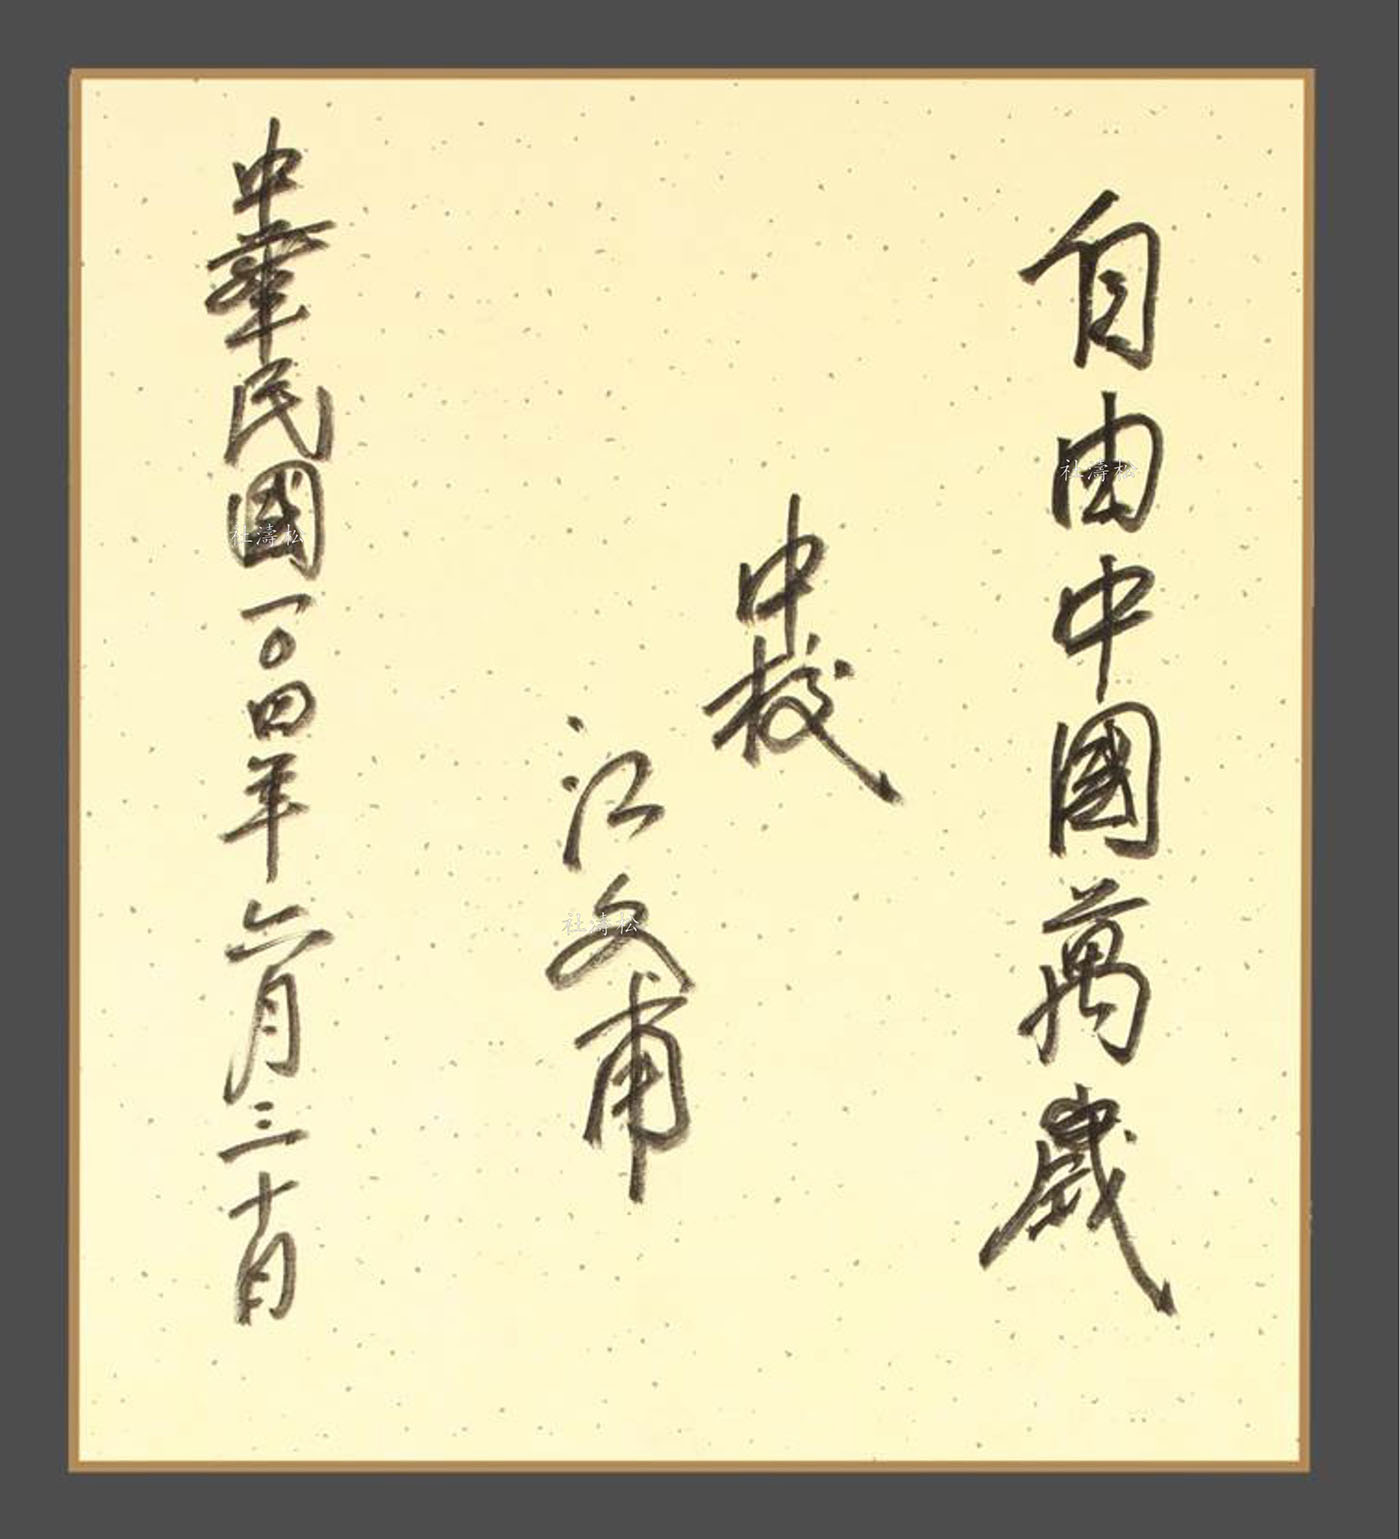 自由中國萬歲
中校
江文甫
中華民國一〇四年六月三十日
松濤社
松濤社
松濤社